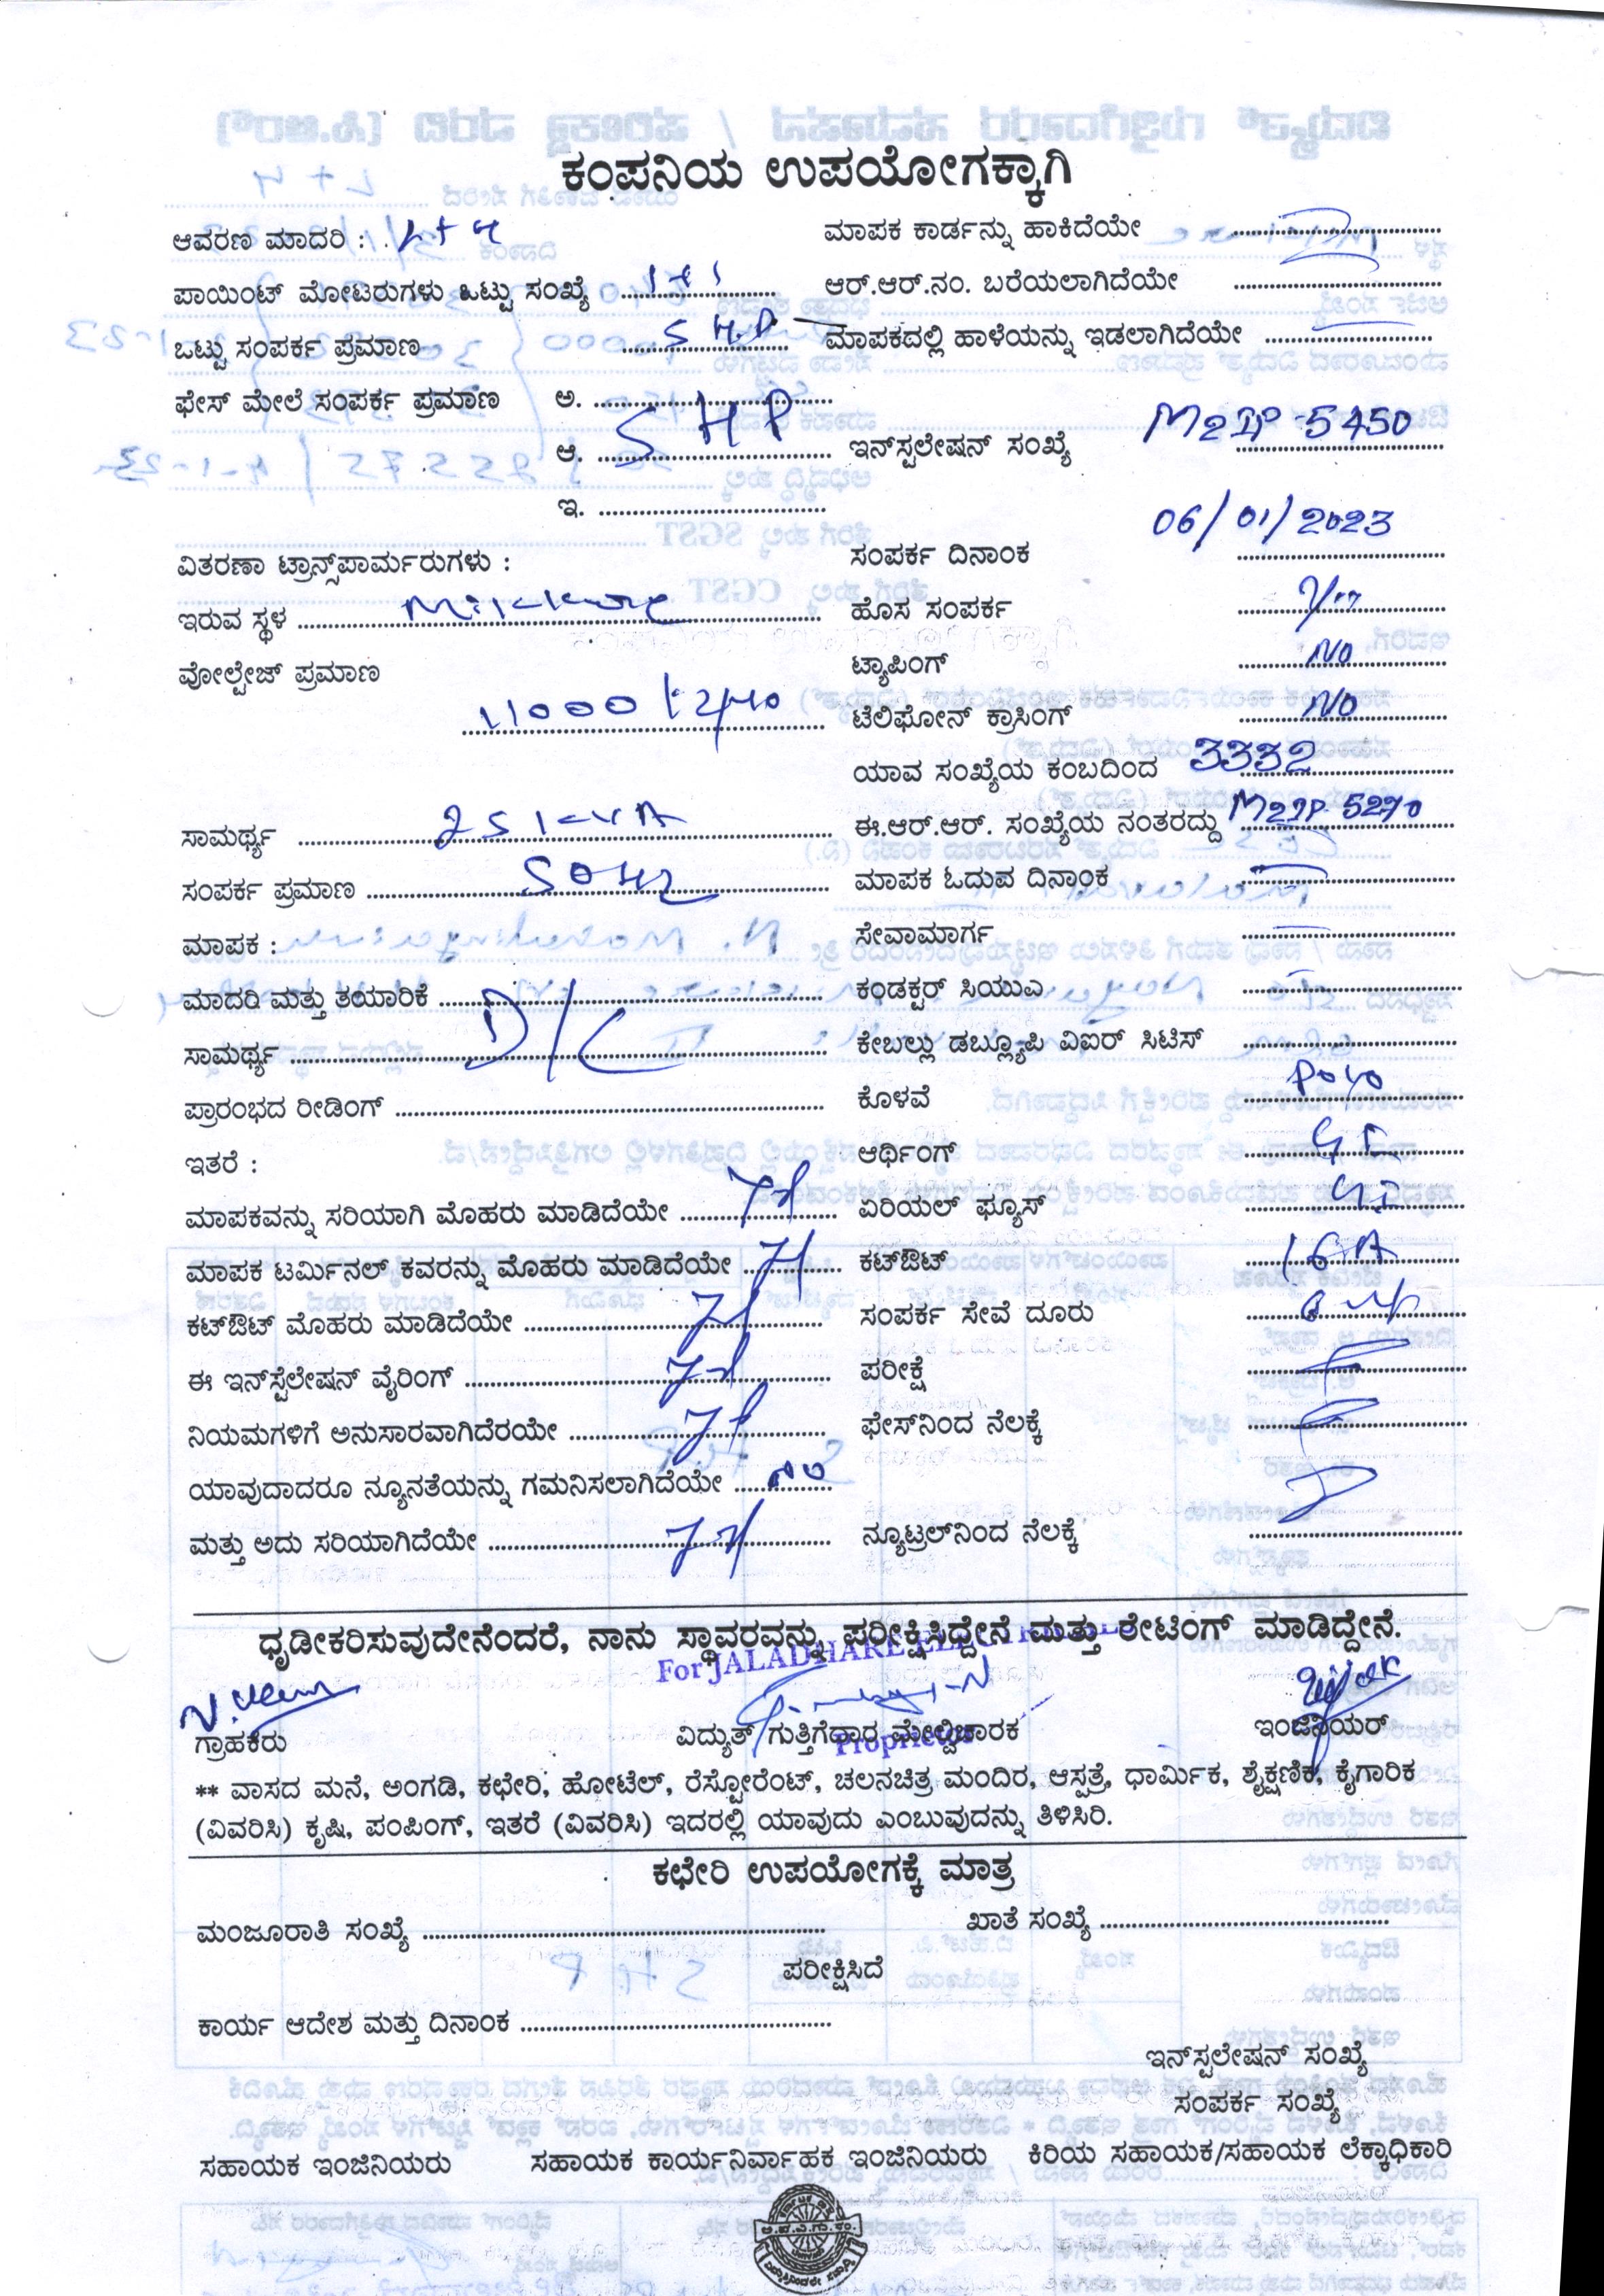 ಕಂಪನಿಯ ಉಪಯೋಗಕ್ಕಾಗಿ
ಆವರಣ ಮಾದರಿ : L+4
ಮಾಪಕ ಕಾರ್ಡನ್ನು ಹಾಕಿದೆಯೇ
ಪಾಯಿಂಟ್ ಮೋಟರುಗಳು ಒಟ್ಟು ಸಂಖ್ಯೆ 1+1
ಆರ್.ಆರ್.ನಂ. ಬರೆಯಲಾಗಿದೆಯೇ
ಒಟ್ಟು ಸಂಪರ್ಕ ಪ್ರಮಾಣ 5 H.P.
ಮಾಪಕದಲ್ಲಿ ಹಾಳೆಯನ್ನು ಇಡಲಾಗಿದೆಯೇ
ಫೇಸ್ ಮೇಲೆ ಸಂಪರ್ಕ ಪ್ರಮಾಣ ಅ.
ಆ. 5 HP
ಇನ್‌ಸ್ಟಲೇಷನ್ ಸಂಖ್ಯೆ M2IP-5450
ಇ.
ವಿತರಣಾ ಟ್ರಾನ್ಸ್‌ಪಾರ್ಮರುಗಳು :
ಸಂಪರ್ಕ ದಿನಾಂಕ 06/01/2023
ಇರುವ ಸ್ಥಳ
ಹೊಸ ಸಂಪರ್ಕ
ವೋಲ್ಟೇಜ್ ಪ್ರಮಾಣ
ಟ್ಯಾಪಿಂಗ್ NO
11000/240
ಟೆಲಿಫೋನ್ ಕ್ರಾಸಿಂಗ್ NO
ಯಾವ ಸಂಖ್ಯೆಯ ಕಂಬದಿಂದ 3332
ಸಾಮರ್ಥ್ಯ 25 KVA
ಈ.ಆರ್.ಆರ್. ಸಂಖ್ಯೆಯ ನಂತರದ್ದು M2IP 5270
ಸಂಪರ್ಕ ಪ್ರಮಾಣ 50HZ
ಮಾಪಕ ಓದುವ ದಿನಾಂಕ
ಮಾಪಕ :
ಸೇವಾಮಾರ್ಗ
ಮಾದರಿ ಮತ್ತು ತಯಾರಿಕೆ
ಕಂಡಕ್ಟರ್ ಸಿಯುಎ
ಸಾಮರ್ಥ್ಯ D/C
ಕೇಬಲ್ಲು ಡಬ್ಲ್ಯೂಪಿ ವಿಐರ್ ಸಿಟಿಸ್
ಪ್ರಾರಂಭದ ರೀಡಿಂಗ್
ಕೊಳವೆ
ಇತರೆ :
ಆರ್ಥಿಂಗ್
ಮಾಪಕವನ್ನು ಸರಿಯಾಗಿ ಮೊಹರು ಮಾಡಿದೆಯೇ
ಏರಿಯಲ್ ಫ್ಯೂಸ್
ಮಾಪಕ ಟರ್ಮಿನಲ್ ಕವರನ್ನು ಮೊಹರು ಮಾಡಿದೆಯೇ
ಕಟ್‌ಔಟ್ 16A
ಕಟ್‌ಔಟ್ ಮೊಹರು ಮಾಡಿದೆಯೇ
ಸಂಪರ್ಕ ಸೇವೆ ದೂರು
ಈ ಇನ್‌ಸ್ಟೆಲೇಷನ್ ವೈರಿಂಗ್
ಪರೀಕ್ಷೆ
ನಿಯಮಗಳಿಗೆ ಅನುಸಾರವಾಗಿದೆರಯೇ
ಫೇಸ್‌ನಿಂದ ನೆಲಕ್ಕೆ
ಯಾವುದಾದರೂ ನ್ಯೂನತೆಯನ್ನು ಗಮನಿಸಲಾಗಿದೆಯೇ NO
ಮತ್ತು ಅದು ಸರಿಯಾಗಿದೆಯೇ
ನ್ಯೂಟ್ರಲ್‌ನಿಂದ ನೆಲಕ್ಕೆ
ಧೃಡೀಕರಿಸುವುದೇನೆಂದರೆ, ನಾನು ಸ್ಥಾವರವನ್ನು ಪರೀಕ್ಷಿಸಿದ್ದೇನೆ ಮತ್ತು ರೇಟಿಂಗ್ ಮಾಡಿದ್ದೇನೆ.
For JALADHARE
ಗ್ರಾಹಕರು
ವಿದ್ಯುತ್ ಗುತ್ತಿಗೆದಾರ ಮೇಲ್ವಿಚಾರಕ
ಇಂಜಿನಿಯರ್
Proprietor
** ವಾಸದ ಮನೆ, ಅಂಗಡಿ, ಕಛೇರಿ, ಹೋಟೆಲ್, ರೆಸ್ಟೋರೆಂಟ್, ಚಲನಚಿತ್ರ ಮಂದಿರ, ಆಸ್ಪತ್ರೆ, ಧಾರ್ಮಿಕ, ಶೈಕ್ಷಣಿಕ, ಕೈಗಾರಿಕ
(ವಿವರಿಸಿ) ಕೃಷಿ, ಪಂಪಿಂಗ್, ಇತರೆ (ವಿವರಿಸಿ) ಇದರಲ್ಲಿ ಯಾವುದು ಎಂಬುವುದನ್ನು ತಿಳಿಸಿರಿ.
ಕಛೇರಿ ಉಪಯೋಗಕ್ಕೆ ಮಾತ್ರ
ಮಂಜೂರಾತಿ ಸಂಖ್ಯೆ
ಖಾತೆ ಸಂಖ್ಯೆ
ಪರೀಕ್ಷಿಸಿದೆ
ಕಾರ್ಯ ಆದೇಶ ಮತ್ತು ದಿನಾಂಕ
ಇನ್‌ಸ್ಟಲೇಷನ್ ಸಂಖ್ಯೆ
ಸಂಪರ್ಕ ಸಂಖ್ಯೆ
ಸಹಾಯಕ ಇಂಜಿನಿಯರು
ಸಹಾಯಕ ಕಾರ್ಯನಿರ್ವಾಹಕ ಇಂಜಿನಿಯರು
ಕಿರಿಯ ಸಹಾಯಕ/ಸಹಾಯಕ ಲೆಕ್ಕಾಧಿಕಾರಿ